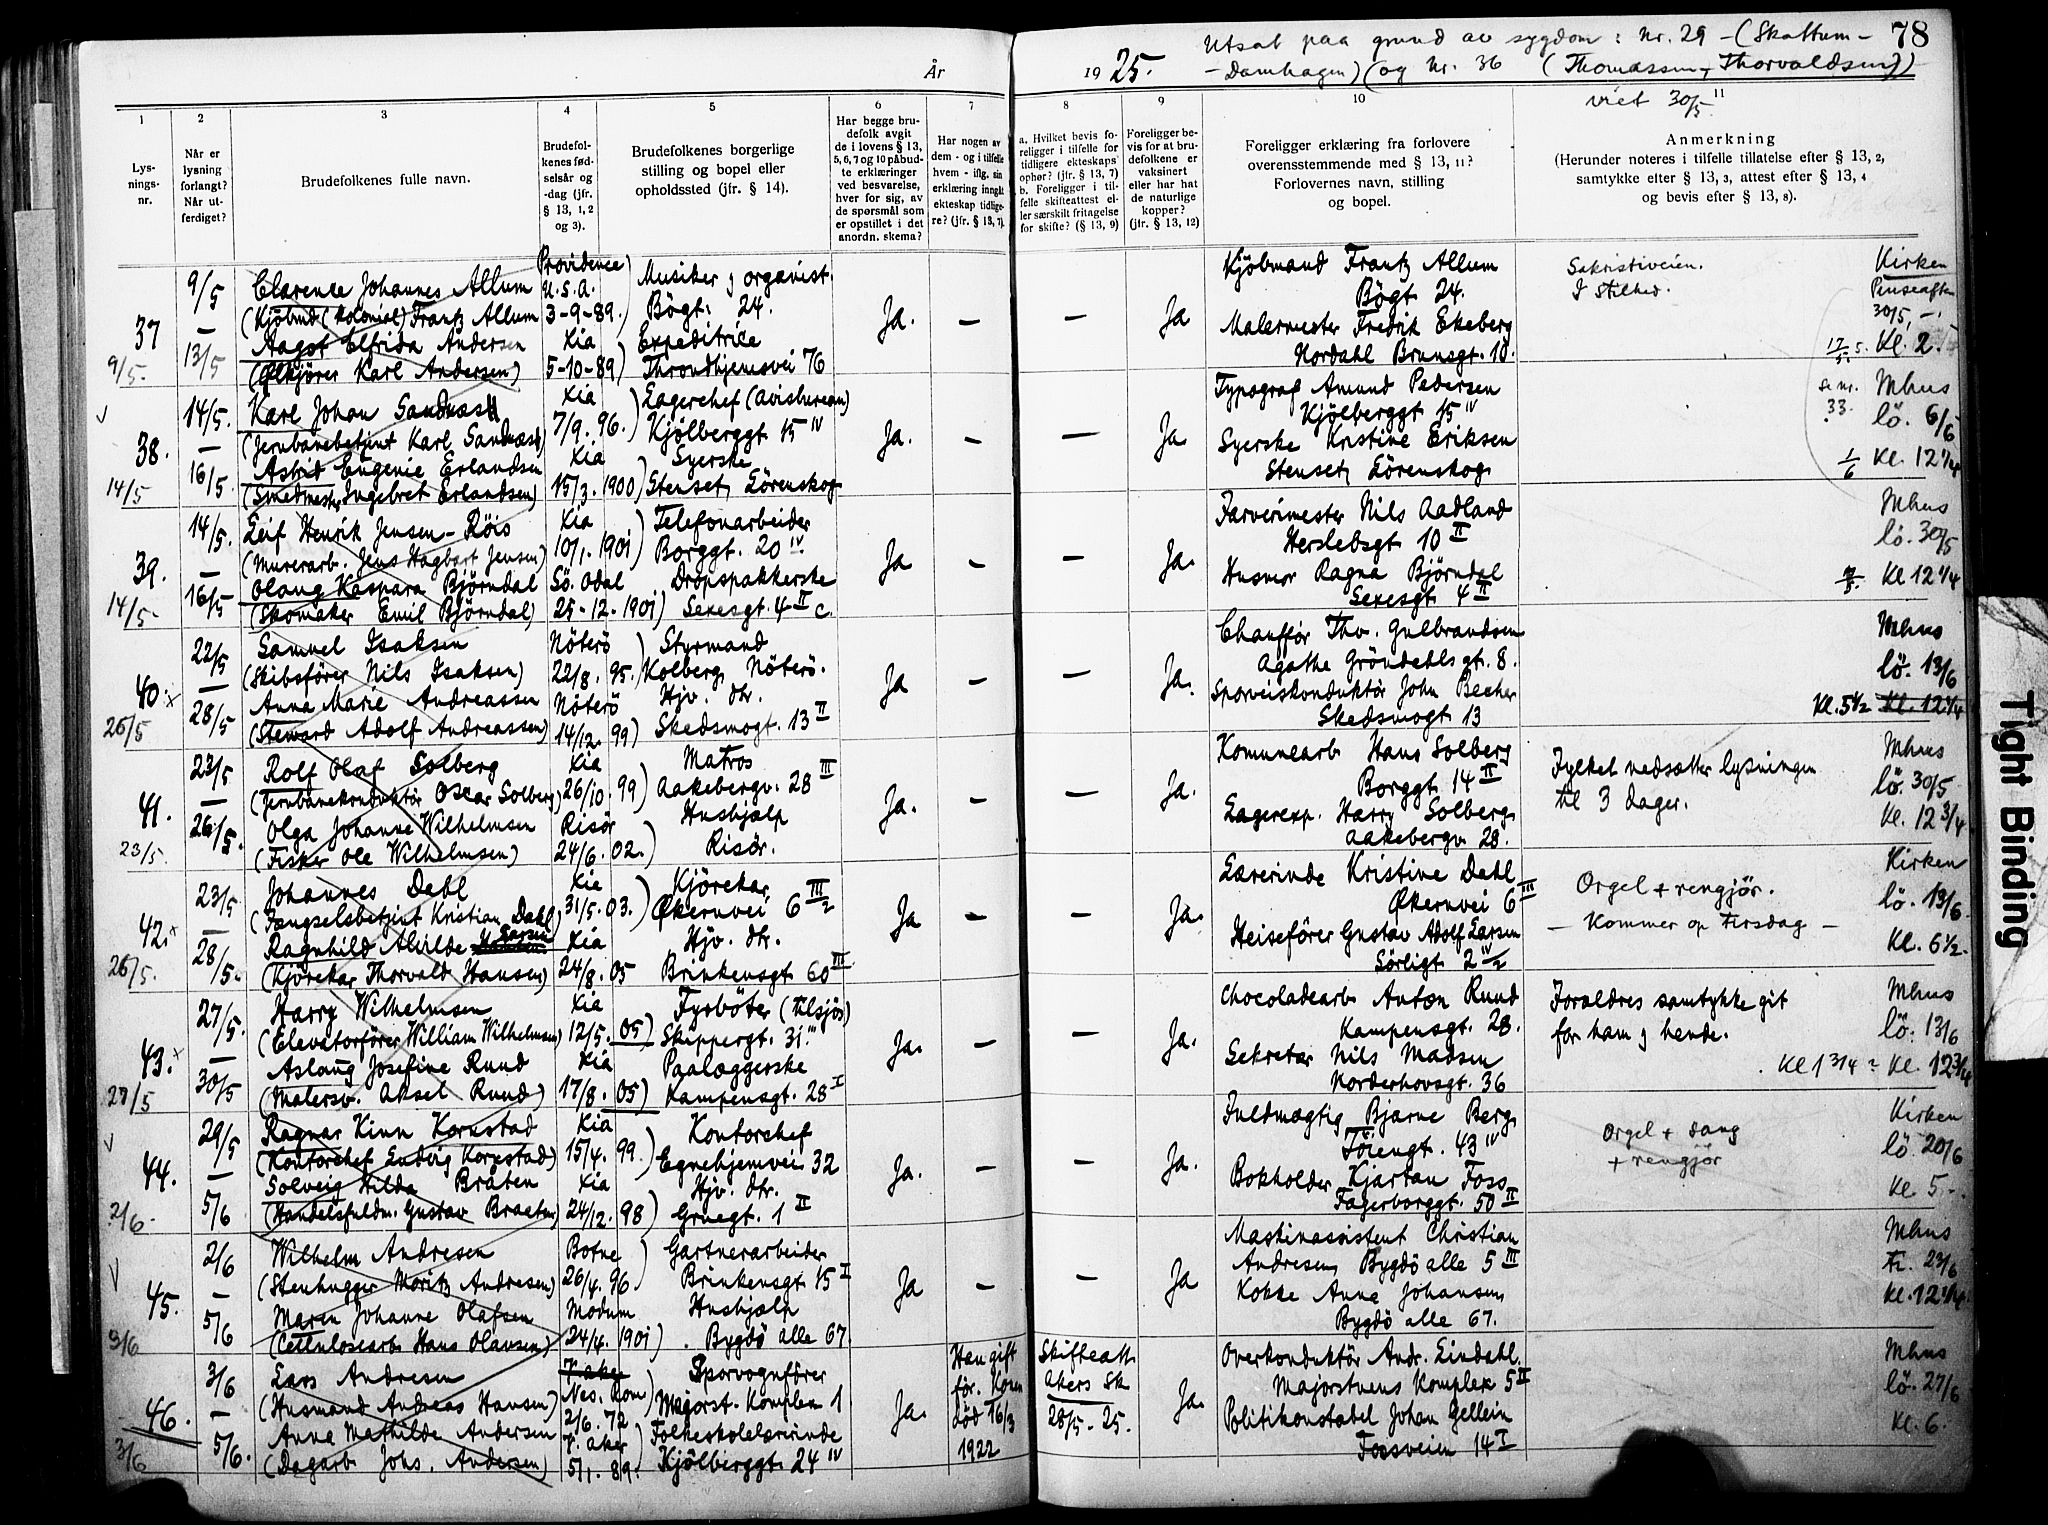 Utsat paa grund av sygdom: Nr. 29 – (Skattum – 78
År 1925. – Damhagen) (og Nr. 36 (Thomassen – Thorvaldsen))
viet 30/5
1 2 3 4 5 6 7 8 9 10 11
Lysningsnr.
Når er lysning forlangt? Når utferdiget?
Brudefolkenes fulle navn.
Brudefolkenes fødselsår og -dag (jfr. § 13, 1, 2 og 3).
Brudefolkenes borgerlige stilling og bopel eller opholdssted (jfr. § 14).
Har begge brudefolk avgit de i lovens § 13, 5, 6, 7 og 10 påbudte erklæringer ved besvarelse, hver for sig, av de spørsmål som er opstillet i det anordn. skema?
Har nogen av dem - og i tilfelle hvem - iflg. sin erklæring inngått ekteskap tidligere? (jfr. § 13, 7).
a. Hvilket bevis foreligger i tilfelle for tidligere ekteskaps ophør? (jfr. § 13, 7)
b. Foreligger i tilfelle skifteattest eller særskilt fritagelse for skifte? (§ 13, 9)
Foreligger bevis for at brudefolkene er vaksinert eller har hat de naturlige kopper? (jfr. § 13, 12)
Foreligger erklæring fra forlovere overensstemmende med § 13, 11? Forlovernes navn, stilling og bopel.
Anmerkning
(Herunder noteres i tilfelle tillatelse efter § 13, 2, samtykke efter § 13, 3, attest efter § 13, 4 og bevis efter § 13, 8).
37 9/5 – 13/5 9/5.
Clarence Johannes Allum Providence U.S.A. Musiker og organist.
(Kjöbmd (Kolonial) Frantz Allum 3-9-89.) Bögt: 24.
Aagot Elfrida Andersen Kia Expeditrice
(Ølkjører Karl Andersen) 5-10-89) Throndhjemsvei 76
Ja. – – Ja
Kjöbmand Frantz Allum
Bögt 24.
Malermester Fredrik Ekeberg
Nordahl Brunsgt. 10.
Sakristiveien.
I Stilhed.
Kirken
Pinseaften
30/5, –
17/5. Kl. 2.
38. 14/5. – 16/5. 14/5
Karl Johan Sandnæs Kia Lagerchef (avisbureau)
(Jernbanebetjent Karl Sandnæs) 7/9. 96.) Kjölberggt. 15 IV
Astrid Eugenie Erlandsen Kia Syerske
(Smedmester Ingebret Erlandsen) 15/3. 1900) Stenset, Lörenskog
Ja. – – Ja.
Typograf Amund Pedersen
Kjölberggt 15 IV
Syerske Kristine Eriksen
Stenset, Lörenskog
se nr. 33. Mhus
lö. 6/6
1/6 Kl. 12 1/4
39. 14/5. – 16/5 14/5-
Leif Henrik Jensen-Röis Kia Telefonarbeider
(Murerarb. Jens Hagbart Jensen) 10/1. 1901) Borggt. 20 IV
Olaug Kaspara Björndal Sö. Odal Dropspakkerske
(Skomaker Emil Björndal) 25-12-1901) Sexesgt. 4 II c.
Ja – – Ja.
Farverimester Nils Aadland
Herslebsgt 10 II
Husmor Ragna Björndal
Sexesgt 4 II
Mhus
lö. 30/5
Kl 12 1/4
40.x 22/5 – 28/5 26/5
Samuel Isaksen Nöterö Styrmand
(Skibsfører Nils Isaksen) 22/8. 95.) Kolberg, Nöterö.
Anna Marie Andreassen Nöterö Hjv. dtr.
(Steward Adolf Andreassen) 14/12. 99) Skedsmogt. 13 II
Ja – – Ja.
Chauffør Thv. Gulbrandsen
Agathe Gröndahls gt. 8.
Sporveiskonduktör John Becher
Skedsmogt 13
Mhus
lö. 13/6
Kl. 5 1/2 Kl. 12 1/4
41. 23/5 – 26/5. 23/5.
Rolf Olaf Solberg Kia Matros
(Jernbanekonduktör Oscar Solberg) 26/10. 99) Aakebergv. 28 III
Olga Johanne Wilhelmsen Risör Hushjælp
(Fisker Ole Wilhelmsen) 24/6. 02.) Risör.
Ja. – – Ja.
Komunearb. Hans Solberg
Borggt. 14 II
Lagerexp. Harry Solberg
Aakebergv. 28.
Fylket nedsætter lysningen
til 3 dager.
Mhus
lö. 30/5
Kl. 12 3/4
42.x 23/5 – 28/5. 26/5.
Johannes Dahl Kia Kjörekar
(Fængselsbetjent Kristian Dahl) 31/5. 03.) Økernvei 6 III/2
Ragnhild Alvilde Larsen Kia Hjv. dtr.
(Kjörekar Thorvald Hansen) 24/8. 05 Brinkensgt 60 III
Ja – – Ja.
Lærerinde Kristine Dahl
Økernvei 6 III
Heisefører Gustav Adolf Larsen
Sörligt 2 IV/2
Orgel + rengjør.
– Kommer op Tirsdag –
Kirken
lö. 13/6
Kl. 6 1/2.
43.x 27/5. – 30/5 27/5
Harry Wilhelmsen Kia Fyrböter (tilsjös)
(Elevatorfører William Wilhelmsen) 12/5. 05) Skippergt. 31 III
Aslaug Josefine Ruud Kia Paalæggerske
(Malersv. Aksel Ruud) 17/8. 05) Kampensgt. 28 I
Ja. – – Ja.
Chocoladearb. Anton Ruud
Kampensgt. 28.
Sekretær Nils Madsen
Norderhovsgt. 36
Forældres samtykke git
for ham og hende.
Mhus
lö. 13/6
Kl 1 3/4 ? Kl. 12 3/4
44. 29/5 – 5/6 2/6-
Ragnar Kinn Kornstad Kia Kontorchef
(Kontorchef Ludvig Kornstad) 15/4. 99.) Egnehjemvei 32
Solveig Hilda Bråten Kia Hjv. dtr.
(Handelsfuldm. Gustav Braaten) 24/12. 98) Gruegt. 1 II
Ja. – – Ja.
Fuldmægtig Bjarne Berg
Töiengt. 43 IV
Bokholder Kjartan Foss
Fagerborggt. 50 II
Orgel + sang
+ rengjør
Kirken
lö. 20/6
Kl. 5 –
45. 2/6 – 5/6 3/6
Wilhelm Andresen Botne Gartnerarbeider
(Stenhugger Moritz Andresen) 26/4. 96 Brinkensgt 15 I
Maren Johanne Olafsen Modum Hushjælp
(Cellulosearb. Hans Olavsen) 24/4. 1901) Bygdö alle 67.
Ja – – Ja
Maskinassistent Christian
Andresen, Bygdö alle 5 III
Kokke Anna Johansen
Bygdö alle 67.
Mhus
Ti. 23/6
Kl. 12 1/4.
46. 3/6 – 5/6. 3/6
Lars Andresen V. Aker Sporvognfører
(Husmand Andreas Hansen) Nes. Rom) 2/6. 72 Majorst. Komplex 1
Anna Mathilde Andersen V. Aker Folkeskolelærerinde
(Dagarb. Johs. Andersen) 5/1. 89. Kjölberggt. 24 IV
Ja. Han gift før. Konen död 16/3 1922
Skifteatt. Akers Sk 28/5. 25. Ja.
Overkonduktör Andr. Lindahl.
Majorstuens Komplex 5 II
Politikonstabel Johan Gellein
Fossveien 14 I
Mhus
lö. 27/6
Kl. 6.
Tight Binding